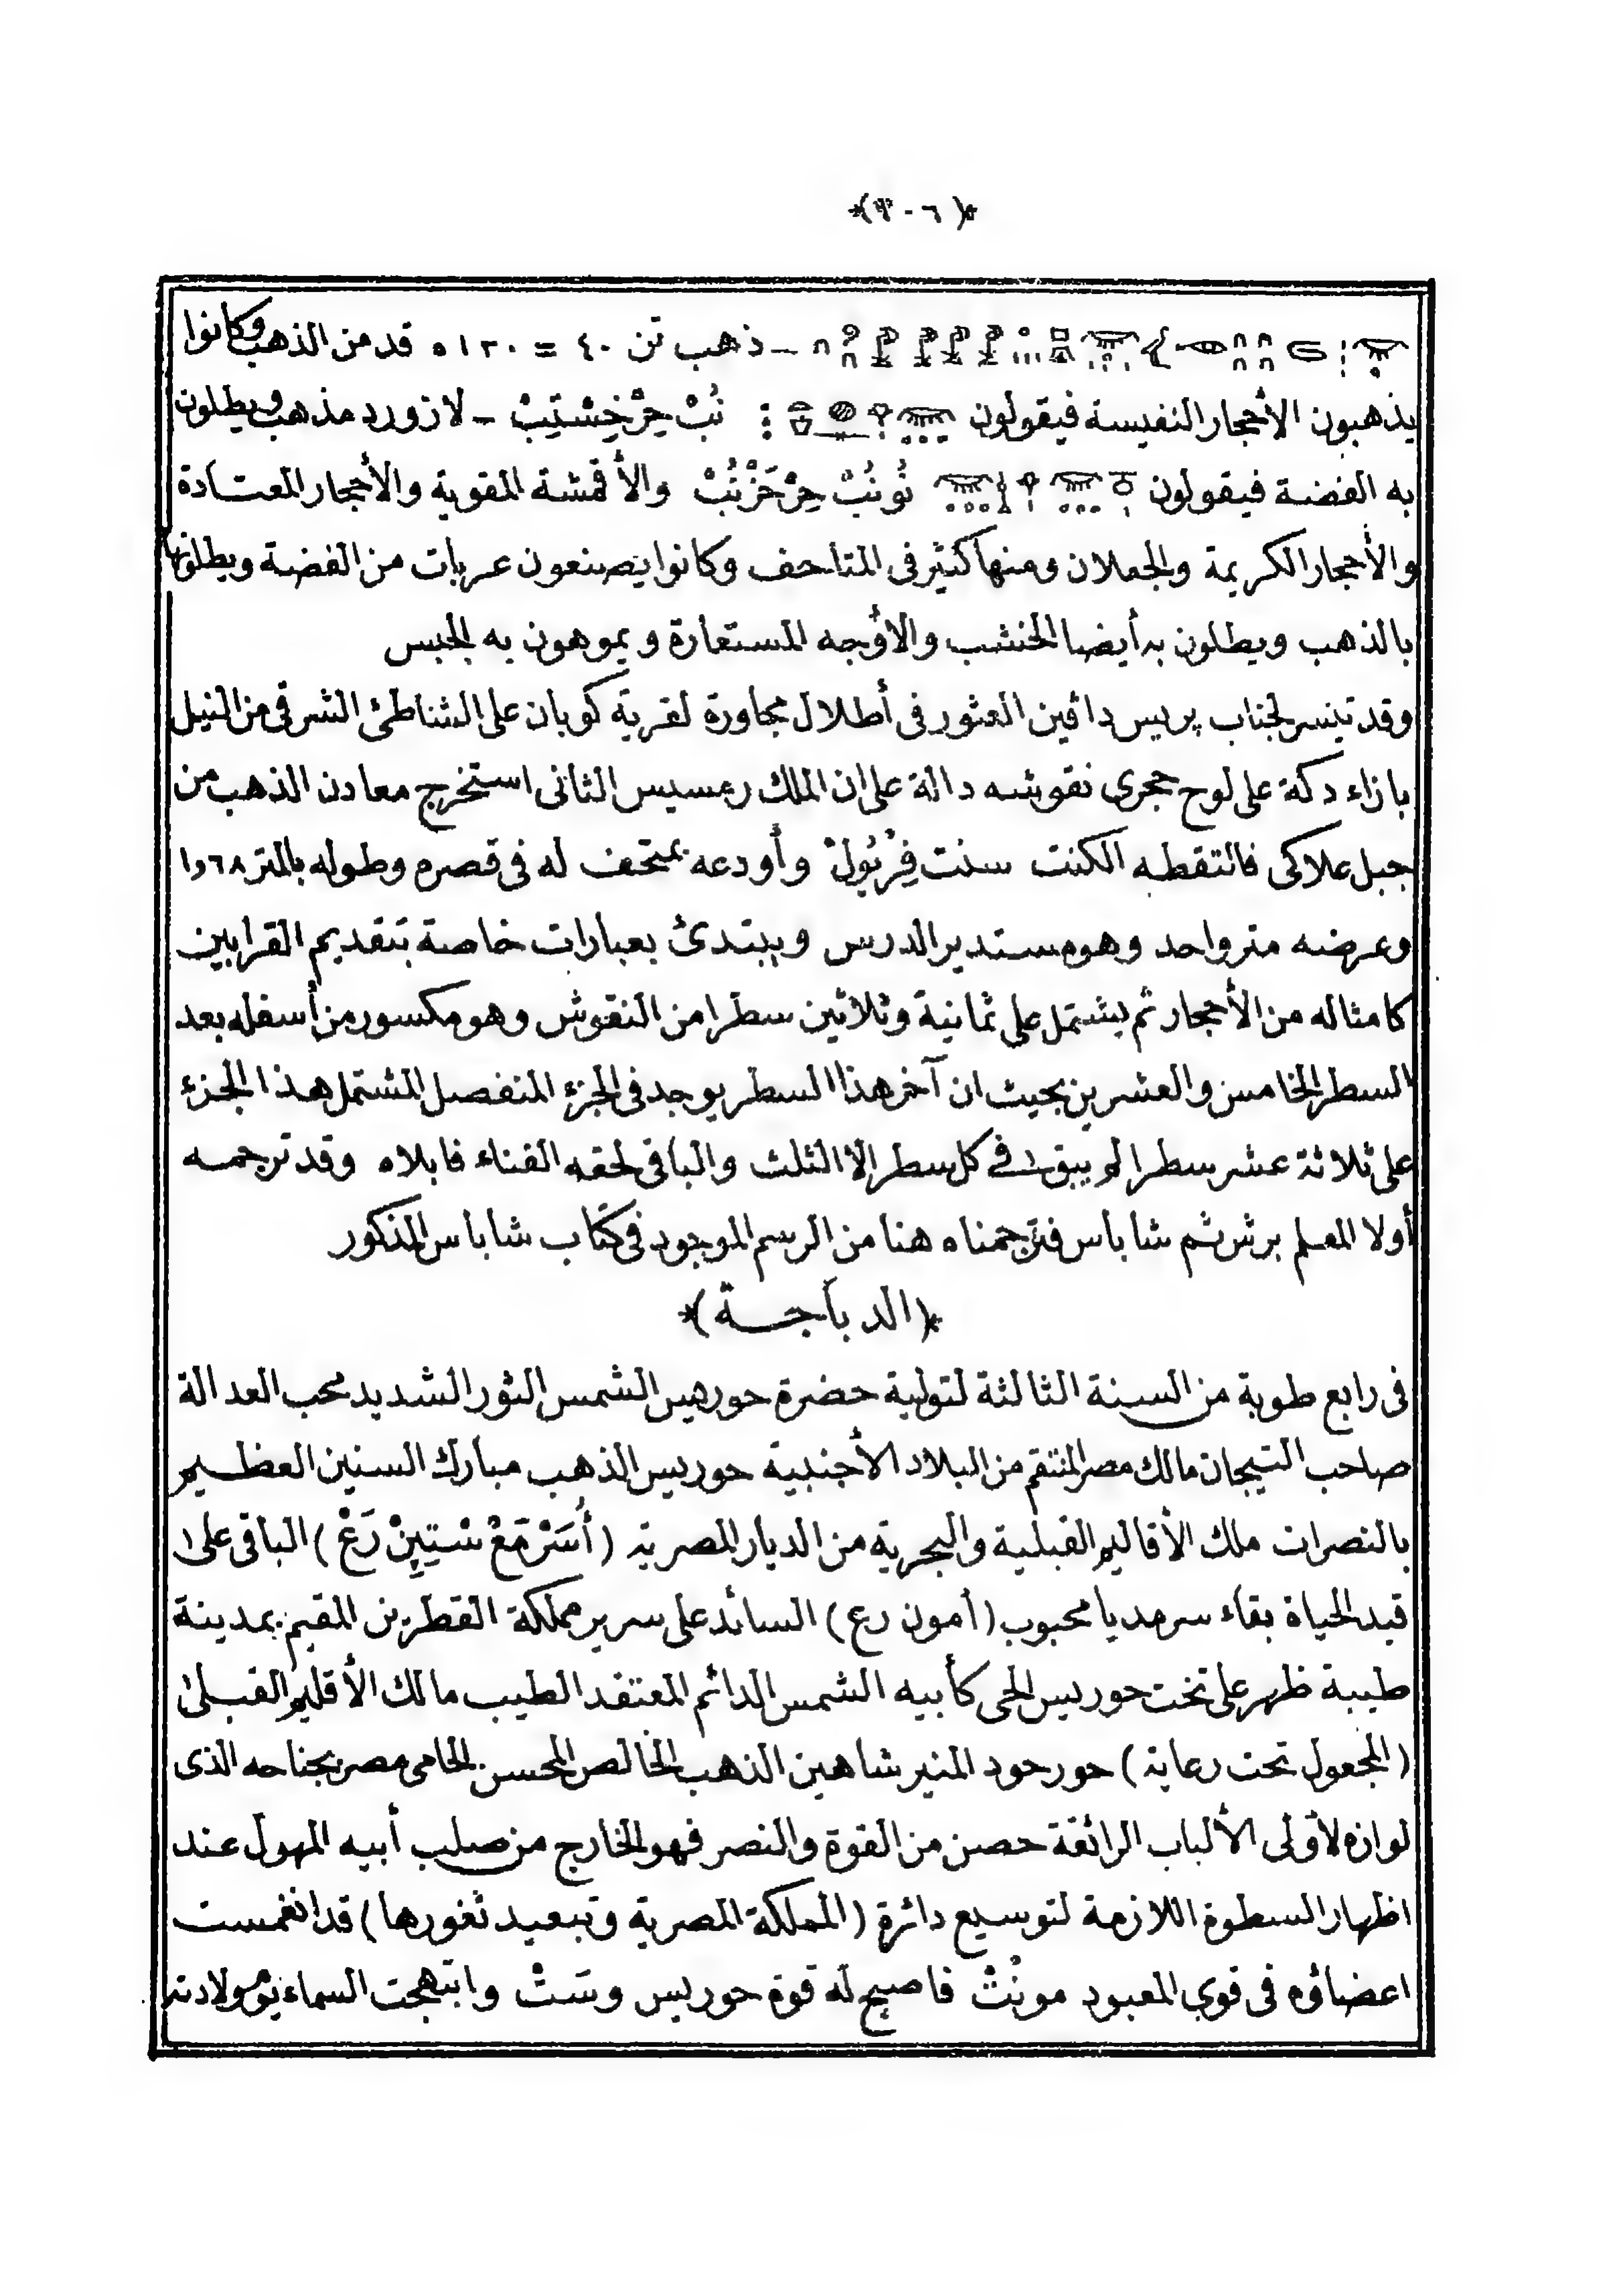 *(٣٠٦)*
ـ ذهب تن ٤٠ = ٥١٢٠ قد من الذهب وكانوا
يذهبون الأحجار النفيسة فيقولون نُبْ حِرْ خِسْتِيبْ ـ لازورد مذهب ويطلون
به الفضة فيقولون نُونُبْ حِرْحَزْنُبْ والأقمشة المقوية والأحجار المعتادة
والأحجار الكريمة والجعلان ومنها كثير فى المتاحف وكانوا يصنعون عربات من الفضة ويطلونها
بالذهب ويطلون به أيضا الخشب والاوجه المستعارة ويموهون به الجبس
وقد تيسر لجناب پريس دافين العثور فى أطلال مجاورة لقرية كوبان على الشاطئ الشرقى من النيل
بازاء دكة على لوح حجرى نقوشه دالة على ان الملك رعمسيس الثانى استخرج معادن الذهب من
جبل علاكى فالتقطه الكنت سنت فِرْيُولْ وأودعه بمتحف له فى قصره وطوله بالمتر ١٫٦٨
وعرضه متر واحد وهو مستدير الرس ويبتدئ بعبارات خاصة بتقديم القرابين
كامثاله من الأحجار ثم يشتمل على ثمانية وثلاثين سطرا من النقوش وهو مكسور من أسفله بعد
السطر الخامس والعشرين بحيث ان آخر هذا السطر يوجد فى الجزء المنفصل المشتمل هذا الجزء
على ثلاثة عشر سطرا لم يبق فى كل سطر الا الثلث والباقى لحقه الفناء فابلاه وقد ترجمه
أولا المعلم برش ثم شاباس فترجمناه هنا من الرسم الموجود فى كتاب شاباس المذكور
*(الديباجة)*
فى رابع طوبة من السنة الثالثة لتولية حضرة حورهيس الشمس الثور الشديد محب العدالة
صاحب التيجان مالك مصر المنتقم من البلاد الأجنبية حوريس الذهب مبارك السنين العظيم
بالنصرات ملك الأقاليم القبلية والبحرية من الديار المصرية (أُسَرْمَعْ سْتِيِنْ رَعْ) الباقى على
قيد الحياة بقاء سرمديا محبوب (أمون رع) السائد على سرير مملكة القطرين المقيم بمدينة
طيبة ظهر على تخت حوريس الحى كأبيه الشمس الدائم المعتقد الطيب مالك الأقليم القبلى
(المجعول تحت رعاية) حورحود المنير شاهين الذهب الخالص المحسن الحامى مصر بجناحه الذى
لوازه لأولى الألباب الرائقة حصن من القوة والنصر فهو الخارج من صلب أبيه المهول عند
اظهار السطوة اللازمة لتوسيع دائرة (المملكة المصرية وتبعيد ثغورها) قد انغمست
اعضاؤه فى قوى المعبود مونْتْ فاصبح له قوة حوريس وسَتْ وابتهجت السماء يوم ولادته